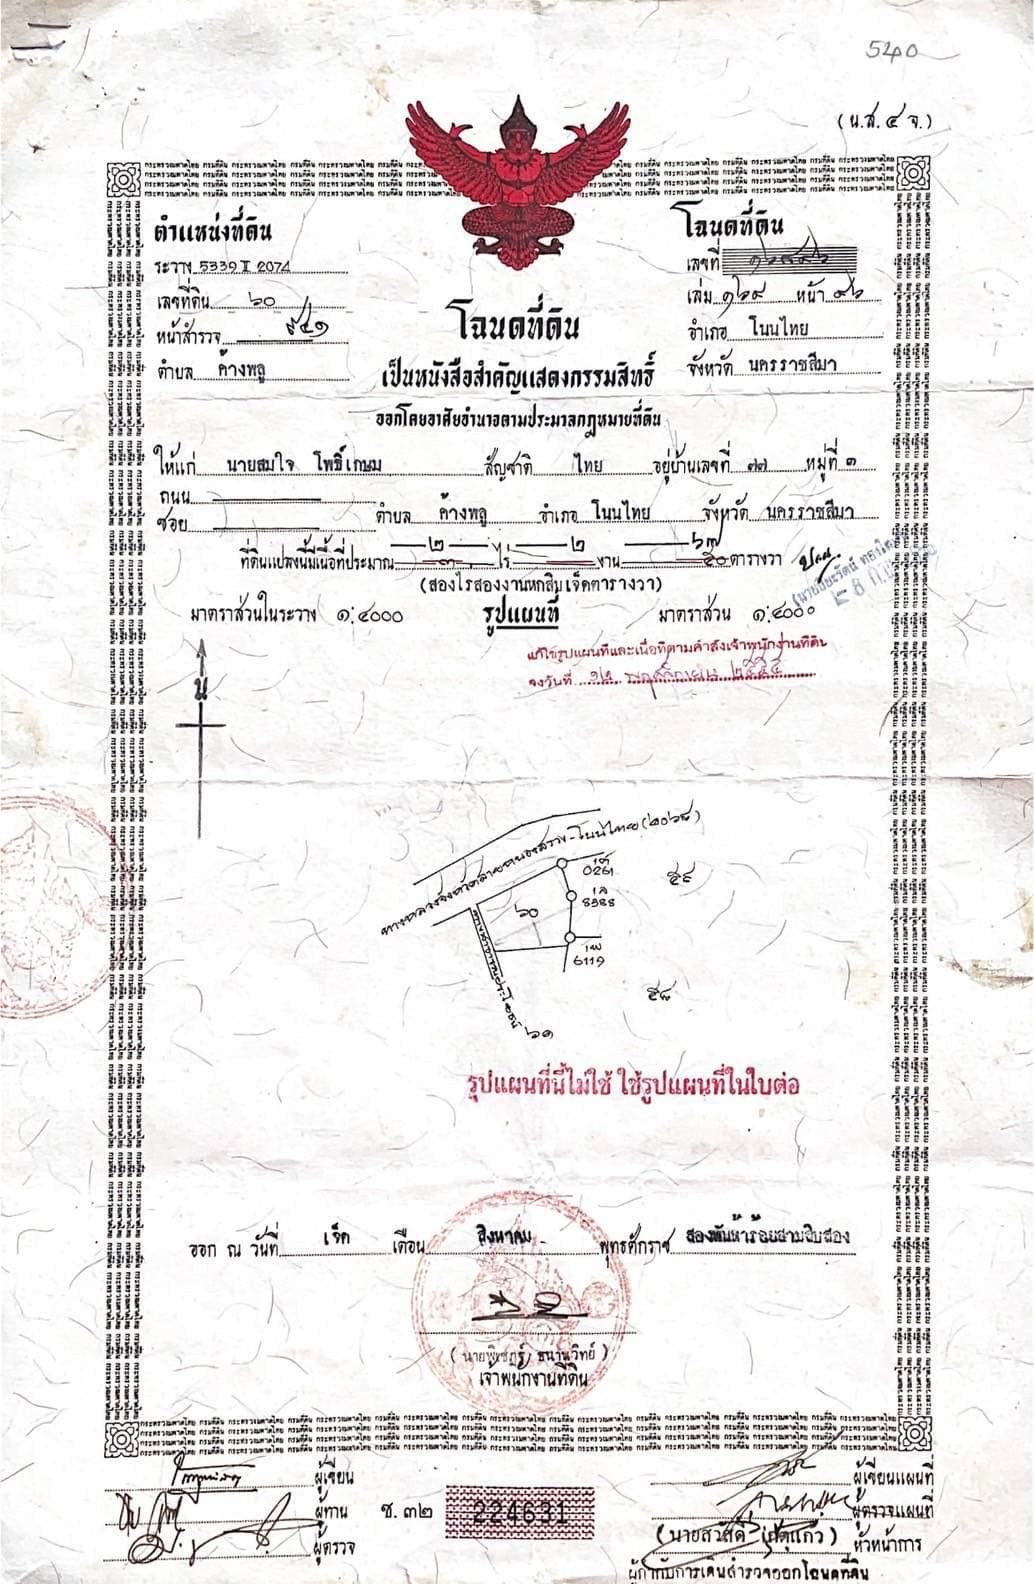 5240
(น.ส. ๔ จ.)
ตำแหน่งที่ดิน
ระวาง 5339 II 2074
เลขที่ดิน ๖๐
หน้าสำรวจ ๙๔๑
ตำบล ค้างพลู
โฉนดที่ดิน
เลขที่
เล่ม ๑๖๙ หน้า ๙๖
อำเภอ โนนไทย
จังหวัด นครราชสีมา
โฉนดที่ดิน
เป็นหนังสือสำคัญแสดงกรรมสิทธิ์
ออกโดยอาศัยอำนาจตามประมวลกฎหมายที่ดิน
ให้แก่ นายสมใจ โพธิ์เกษม สัญชาติ ไทย อยู่บ้านเลขที่ ๗๗ หมู่ที่ ๑
ถนน
ซอย ตำบล ค้างพลู อำเภอ โนนไทย จังหวัด นครราชสีมา
๒ ๒ ๖๗
ที่ดินแปลงนี้มีเนื้อที่ประมาณ ๓ ไร่ งาน ๕๐ ตารางวา
(สองไร่สองงานหกสิบเจ็ดตารางวา)
มาตราส่วนในระวาง ๑:๔๐๐๐ รูปแผนที่ มาตราส่วน ๑:๔๐๐๐
แก้ไขรูปแผนที่และเนื้อที่ตามคำสั่งเจ้าพนักงานที่ดิน
ลงวันที่ ๑๘ พฤศจิกายน ๒๕๕๔
น
ทางหลวงจังหวัดสายหนองสรวง-โนนไทย (๒๐๖๘)
0261
๕๙
8388
๖๐
6119
ทางสาธารณประโยชน์
๕๘
๖๑
รูปแผนที่นี้ไม่ใช้ ใช้รูปแผนที่ในใบต่อ
ออก ณ วันที่ เจ็ด เดือน สิงหาคม พุทธศักราช สองพันห้าร้อยสามสิบสอง
(นายพิเชฎฐ์ ธนานุวิทย์)
เจ้าพนักงานที่ดิน
ผู้เขียน
ผู้ทาน
ผู้ตรวจ
ช. ๓๒
224631
ผู้เขียนแผนที่
ผู้ตรวจแผนที่
(นายสวัสดิ์ หัวหน้าการ
ผู้กำกับการเดินสำรวจออกโฉนดที่ดิน